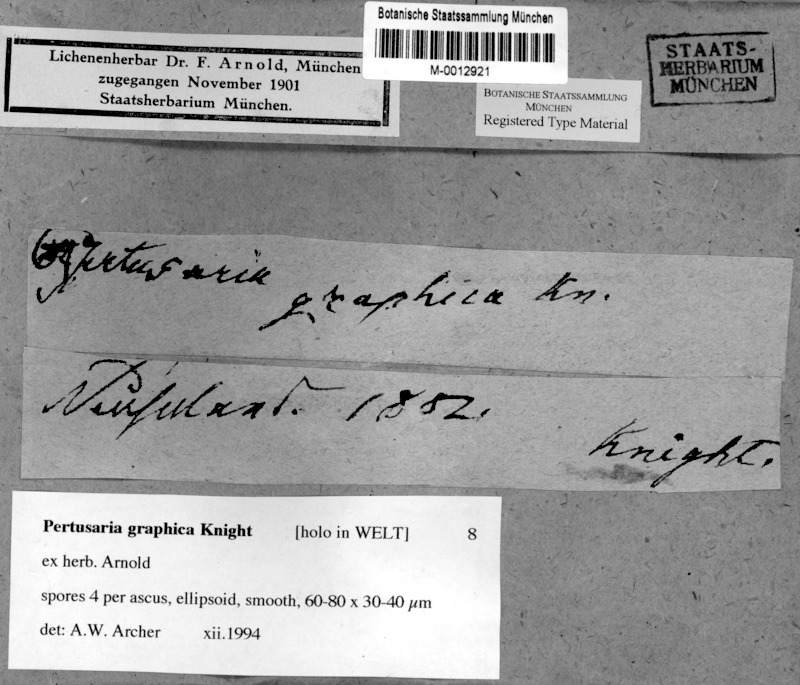 Botanische Staatssammlung München
M-0012921
Lichenenherbar Dr. F. Arnold, München
zugegangen November 1901
Staatsherbarium München.
BOTANISCHE STAATSSAMMLUNG
MÜNCHEN
Registered Type Material
STAATS-
HERBARIUM
MÜNCHEN
Pertusaria
graphica Kn.
Neuseeland. 1882.
Knight.
Pertusaria graphica Knight [holo in WELT] 8
ex herb. Arnold
spores 4 per ascus, ellipsoid, smooth, 60-80 x 30-40 µm
det: A.W. Archer xii.1994